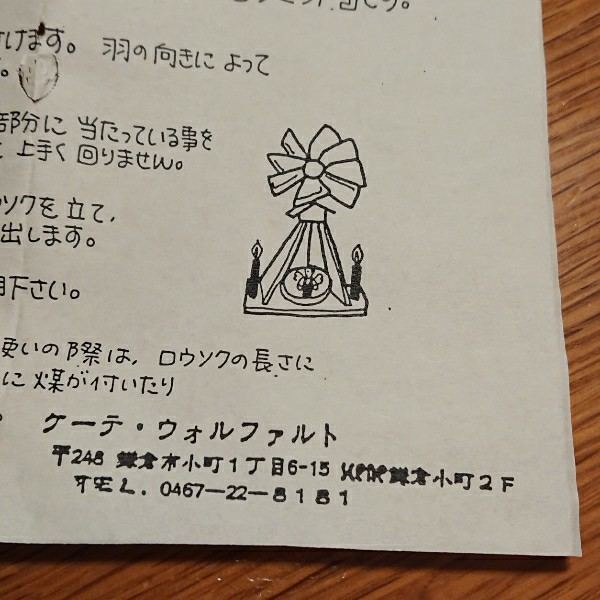 けます。 羽の向きに よって
部分に 当たっている事を
上手く 回りません。
ソクを 立て,
出します。
下さい。
使いの 際は, ロウソクの長さに
に 煤が付いたり
ケーテ・ウォルファルト
〒248 鎌倉市小町1丁目6-15 鎌倉小町2F
TEL. 0467-22-8181